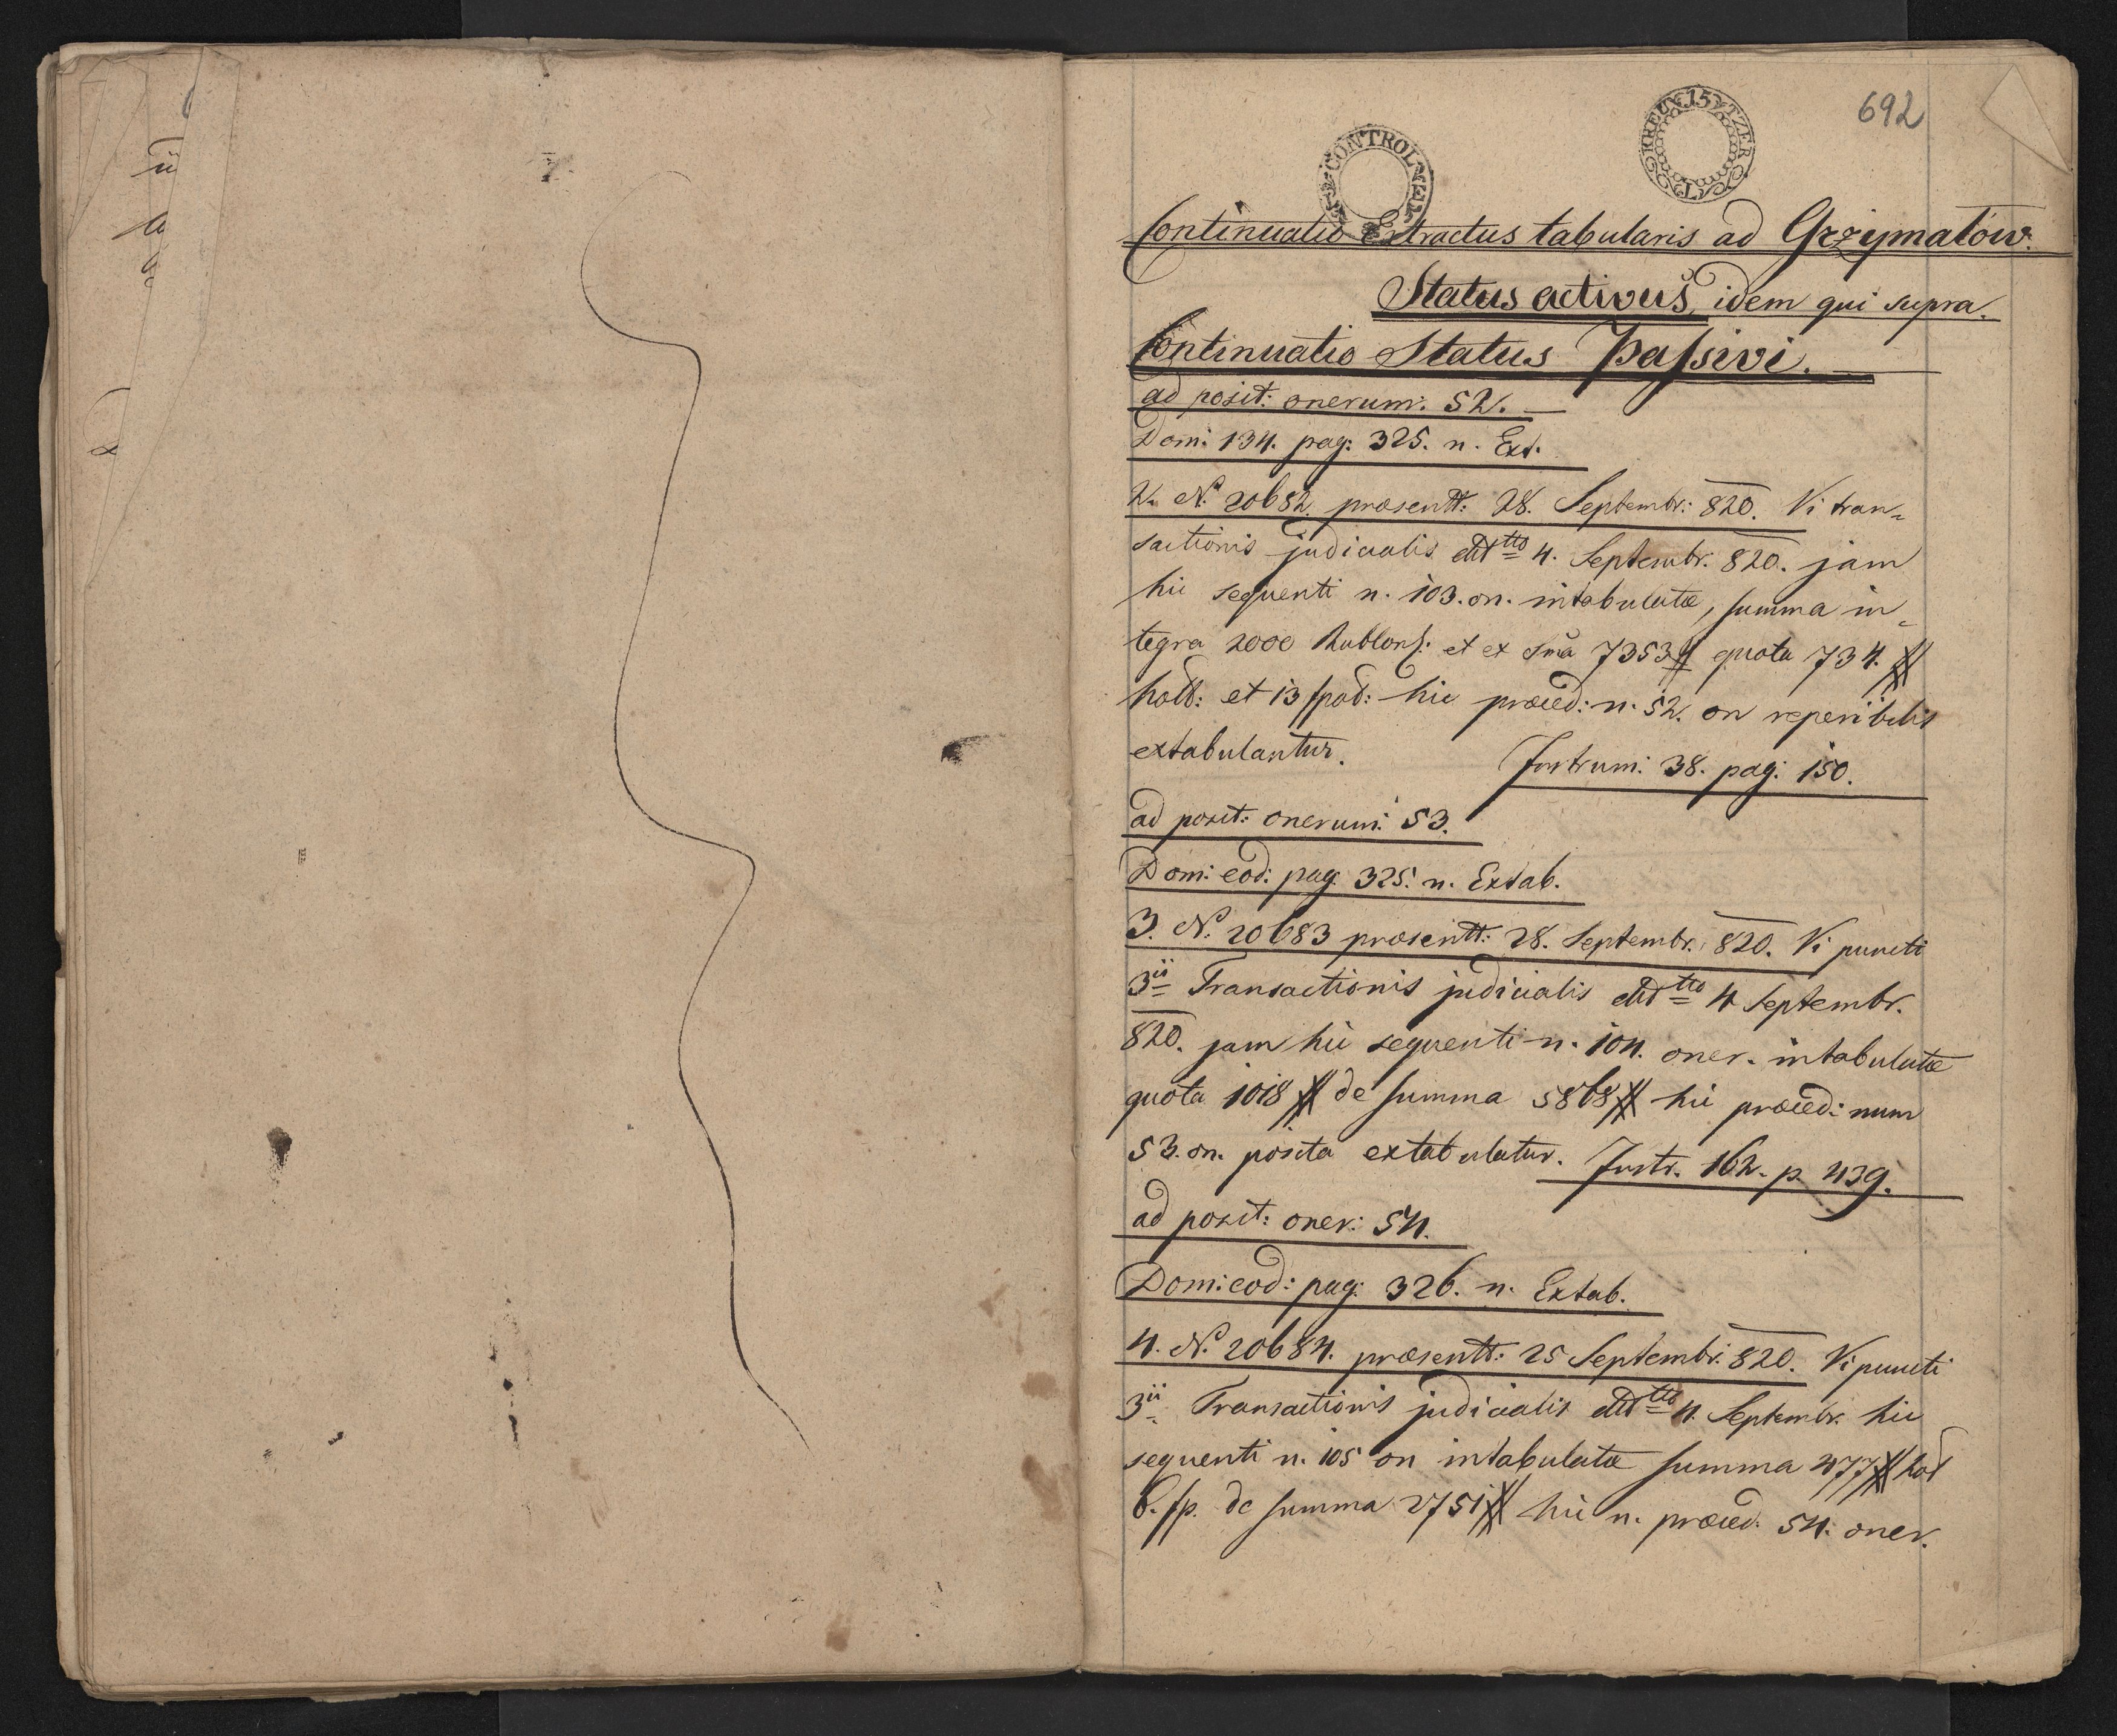 692
CONTROL
KREUTZER 15
Continuatio Extractus tabularis ad Grzymałów.
Status activus, idem qui supra.
Continuatio Status Passivi.
ad posit: onerum: 52.
Dom: 134. pag: 325. n. Ext.
2. N. 20682. præsentt: 28. Septembr: 820. Vi tran=
sactionis judicialis ddtto 4. Septembr. 820. jam
hic sequenti n. 103. on. intabulatæ, summa in=
tegra 2000 Rublons: et ex sma 7353 # quota 734. #
holl: et 13 spad: hic præced: n. 52. on reperibilis
extabulantur. Instrum: 38. pag: 150.
ad posit: onerum: 53.
Dom: eod: pag. 325. n. Extab.
3. N. 20683 præsentt: 28. Septembr. 820. Vi puncti
3ii Transactionis judicialis ddtto 4 Septembr.
820. jam hic sequenti n. 104. oner. intabulatæ
quota 1018 # de summa 5868 # hic præced: num
53. on. posita extabulatur. Instr. 162. p. 439.
ad posit: oner: 54.
Dom: eod: pag. 326. n. Extab.
4. N. 20684. præsentt: 25 Septembr. 820. Vi puncti
3ii Transactionis judicialis ddtto 4. Septembr. hic
sequenti n. 105 on intabulatæ summa 477 # hol
6. sp. de summa 2751 # hic n. præced. 54. oner.